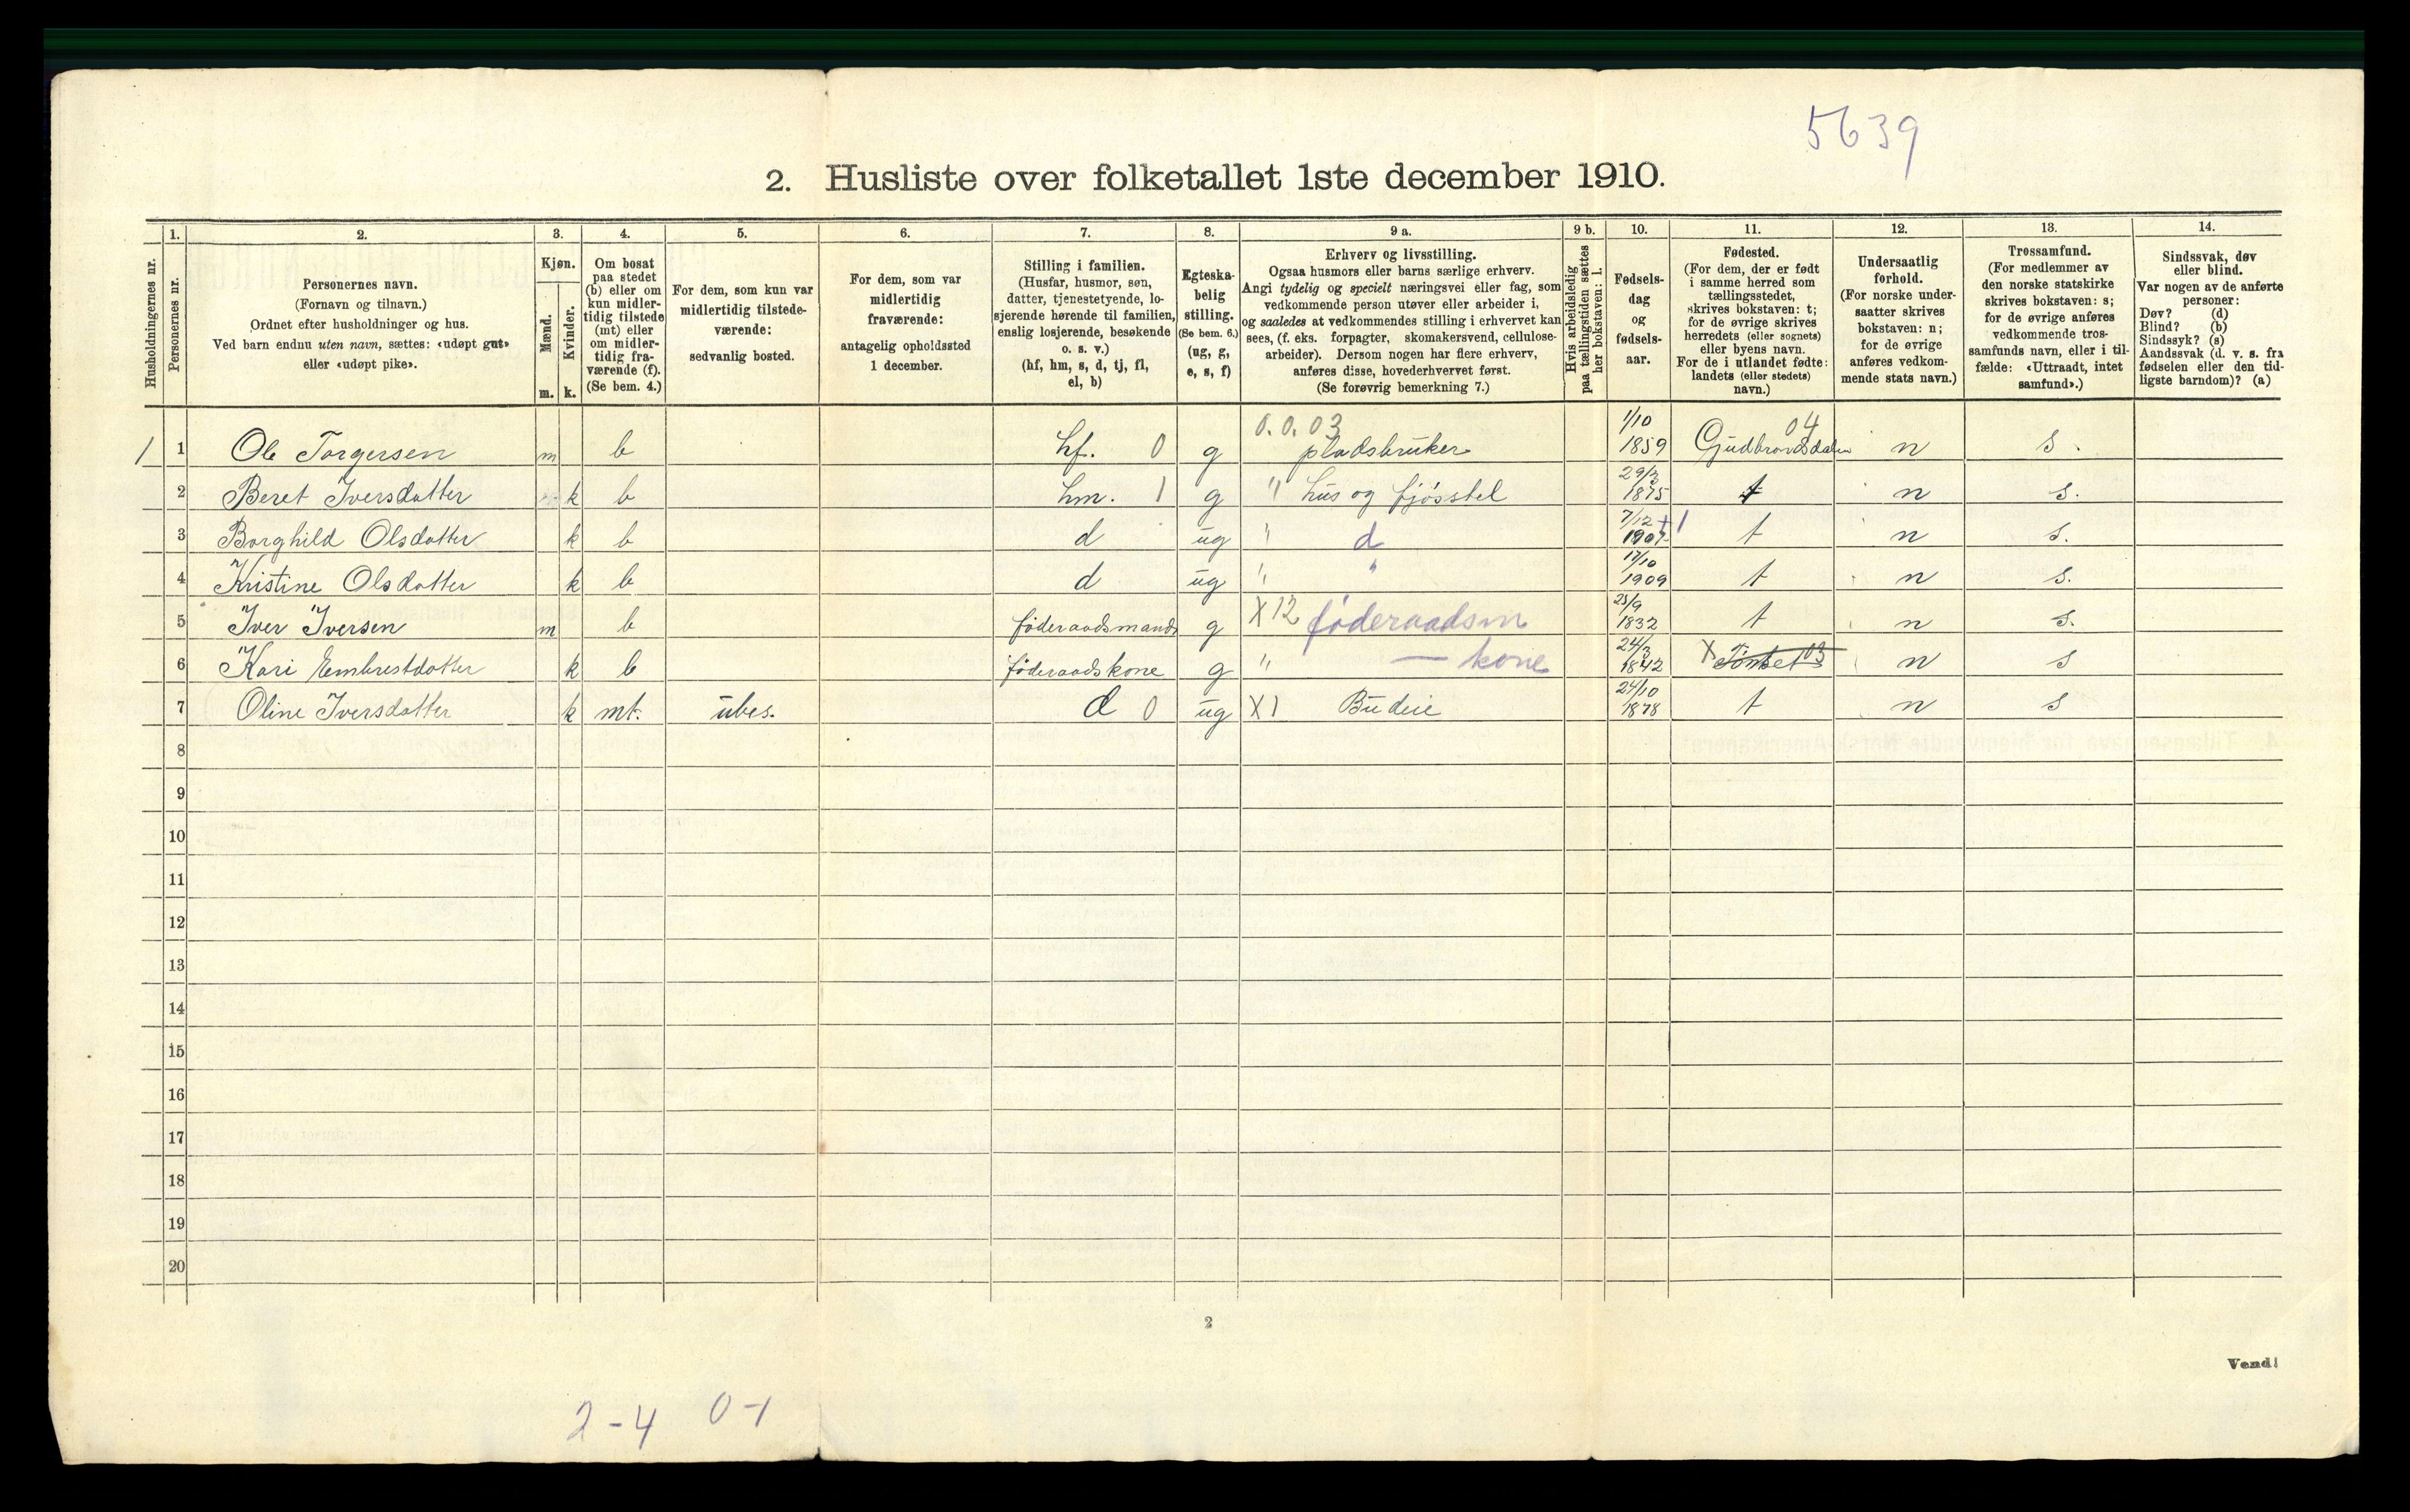 5639
2. Husliste over folketallet 1ste december 1910.
Husholdningernes nr.
1. Personernes nr.
2. Personernes navn. (Fornavn og tilnavn.) Ordnet efter husholdninger og hus. Ved barn endnu uten navn, sættes: «udøpt gut» eller «udøpt pike».
3. Kjøn. Mænd. m. Kvinder. k.
4. Om bosat paa stedet (b) eller om kun midlertidig tilstede (mt) eller om midlertidig fraværende (f). (Se bem. 4.)
5. For dem, som kun var midlertidig tilstedeværende: sedvanlig bosted.
6. For dem, som var midlertidig fraværende: antagelig opholdssted 1 december.
7. Stilling i familien. (Husfar, husmor, søn, datter, tjenestetyende, losjerende hørende til familien, enslig losjerende, besøkende o. s. v.) (hf, hm, s, d, tj, fl, el, b)
8. Egteskabelig stilling. (Se bem. 6.) (ug, g, e, s, f)
9 a. Erhverv og livsstilling. Ogsaa husmors eller barns særlige erhverv. Angi tydelig og specielt næringsvei eller fag, som vedkommende person utøver eller arbeider i, og saaledes at vedkommendes stilling i erhvervet kan sees, (f. eks. forpagter, skomakersvend, cellulosearbeider). Dersom nogen har flere erhverv, anføres disse, hovederhvervet først. (Se forøvrig bemerkning 7.)
9 b. Hvis arbeidsledig paa tællingstiden sættes her bokstaven: l.
10. Fødselsdag og fødselsaar.
11. Fødested. (For dem, der er født i samme herred som tællingsstedet, skrives bokstaven: t; for de øvrige skrives herredets (eller sognets) eller byens navn. For de i utlandet fødte: landets (eller stedets) navn.)
12. Undersaatlig forhold. (For norske undersaatter skrives bokstaven: n; for de øvrige anføres vedkommende stats navn.)
13. Trossamfund. (For medlemmer av den norske statskirke skrives bokstaven: s; for de øvrige anføres vedkommende trossamfunds navn, eller i tilfælde: «Uttraadt, intet samfund».)
14. Sindssvak, døv eller blind. Var nogen av de anførte personer: Døv? (d) Blind? (b) Sindssyk? (s) Aandssvak (d. v. s. fra fødselen eller den tidligste barndom)? (a)
1 1 Ole Torgersen m b hf. 0 g 0.0.03 pladsbruker 1/10 1859 Gudbrandsdalen 04 n s.
2 Beret Iversdatter k b hm. 1 g " hus og fjøsstel 29/3 1875 t n s.
3 Borghild Olsdatter k b d ug " d 7/12 1907 +1 t n s.
4 Kristine Olsdatter k b d ug " " 17/10 1909 t n s.
5 Iver Iversen m b føderaadsmand g X12 føderaadsm 25/9 1832 t n s.
6 Kari Embretsdatter k b føderaadskone g " — kone 24/3 1842 X 03 n s
7 Oline Iversdatter k mt. ubes. d 0 ug X1 Budeie 24/10 1878 t n s
8
9
10
11
12
13
14
15
16
17
18
19
20
2
Vend!
2-4 0-1